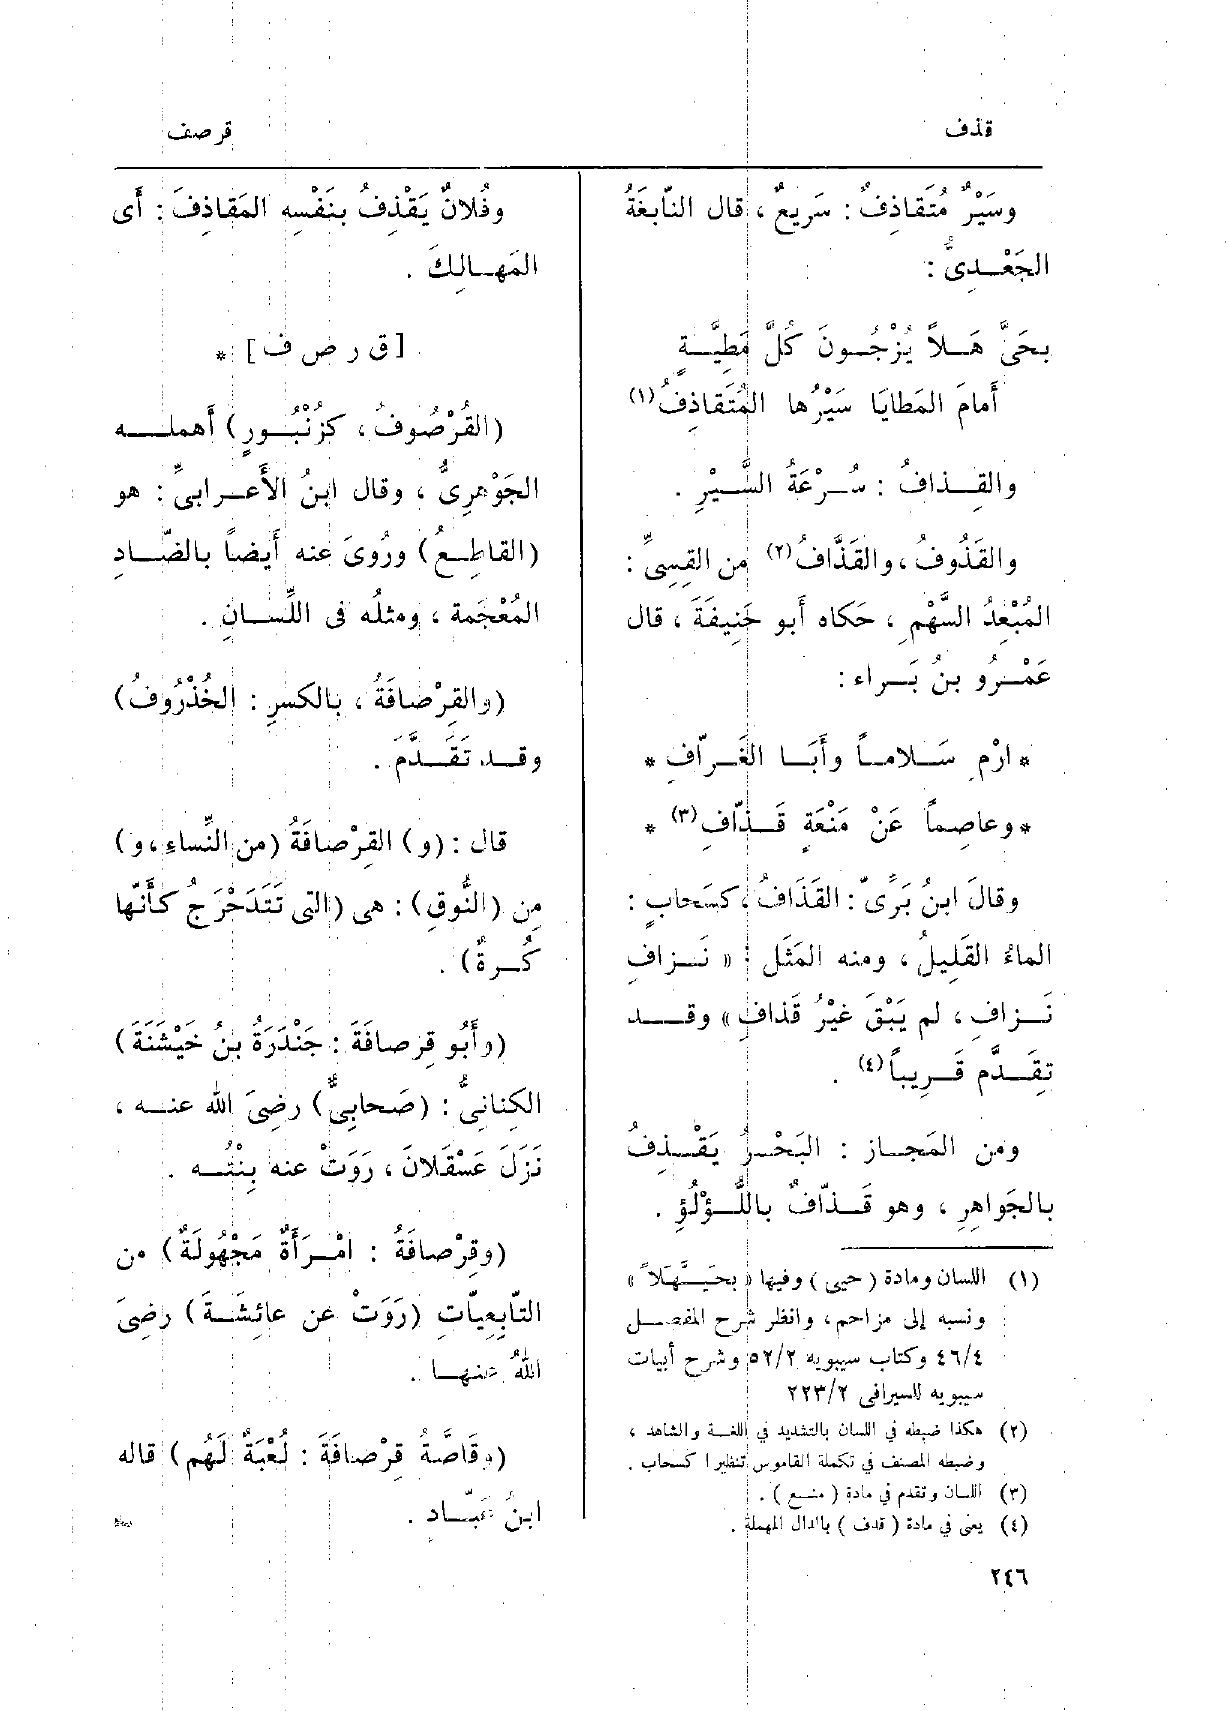 قذف
قرصف
وسَيْرٌ مُتَقاذِفٌ : سَرِيعٌ ، قال النّابِغَةُ
الجَعْدِىُّ :
بِحَىَّ هَلاً يُزْجُونَ كُلَّ مَطِيَّةٍ
أَمامَ المَطايَا سَيْرُها المُتَقاذِفُ (١)
والقِذافُ : سُرْعَةُ السَّيْرِ .
والقَذُوفُ ، والقَذَّافُ (٢) من القِسِىِّ :
المُبْعِدُ السَّهْمِ ، حَكاه أَبو حَنِيفَةَ ، قال
عَمْرُو بنُ بَراء :
* ارْمِ سَلاماً وأَبَا الغَرّافِ *
* وعاصِماً عَنْ مَنْعَةٍ قَذّافِ (٣) *
وقالَ ابنُ بَرِّىّ : القَذَافُ ، كسَحابٍ :
الماءُ القَلِيلُ ، ومنه المَثَل : « نَزافِ
نَزافِ ، لم يَبْقَ غيْرُ قَذافِ » وقد
تقِدَّم قَرِيباً (٤) .
ومن المَجاز : البَحْرُ يَقْذِفُ
بالجَواهِرِ ، وهو قَذّافٌ باللُّؤْلُؤِ .
(١) اللسان ومادة (حيى) وفيها « بِحَيَّهَلاً »
ونسبه إلى مزاحم ، وانظر شرح المفصل
٤٦/٤ وكتاب سيبويه ٥٢/٢ وشرح أبيات
سيبويه للسيرافى ٢٢٣/٢
(٢) هكذا ضبطه في اللسان بالتشديد في اللغة والشاهد ،
وضبطه المصنف في تكملة القاموس تنظيرا كسحاب .
(٣) اللسان وتقدم في مادة ( منع ) .
(٤) يعنى في مادة ( قدف ) بالدال المهملة .
٢٤٦
وفُلانٌ يَقْذِفُ بنَفْسِه المَقاذِفَ : أَى
المَهالِكَ .
[ ق ر ص ف ] *
(القُرْصُوفُ ، كزُنْبُورٍ) أَهمله
الجَوْهرِىُّ ، وقال ابنُ الأَعرابىِّ : هو
(القاطِعُ) ورُوِىَ عنه أَيضاً بالضّادِ
المُعْجَمة ، ومثلُه فى اللِّسانِ .
(والقِرْصافَةُ ، بالكسرِ : الخُذْرُوفُ)
وقد تقَدَّمَ .
قال : (و) القِرْصافَةُ (من النِّساءِ ، و)
مِن (النُّوقِ) : هى (التى تَتَدَحْرَجُ كأَنَّها
كُرةٌ) .
(وأَبُو قِرصافَةَ : جَنْدَرَةُ بنُ خَيْشَنَةَ)
الكِنانىُّ : (صَحابِىٌّ) رضِىَ الله عنه ،
نَزَلَ عَسْقَلانَ ، رَوَتْ عنه بِنْتُه .
(وقِرْصافَةُ : امْرأَةٌ مَجْهُولَةٌ) من
التّابِعِيّاتِ (رَوَتْ عن عائِشَةَ) رضِىَ
اللهُ عنها .
(وقَاصَّةُ قِرْصافَةَ : لُعْبَةٌ لَهُم) قاله
ابنُ عَبّادٍ .